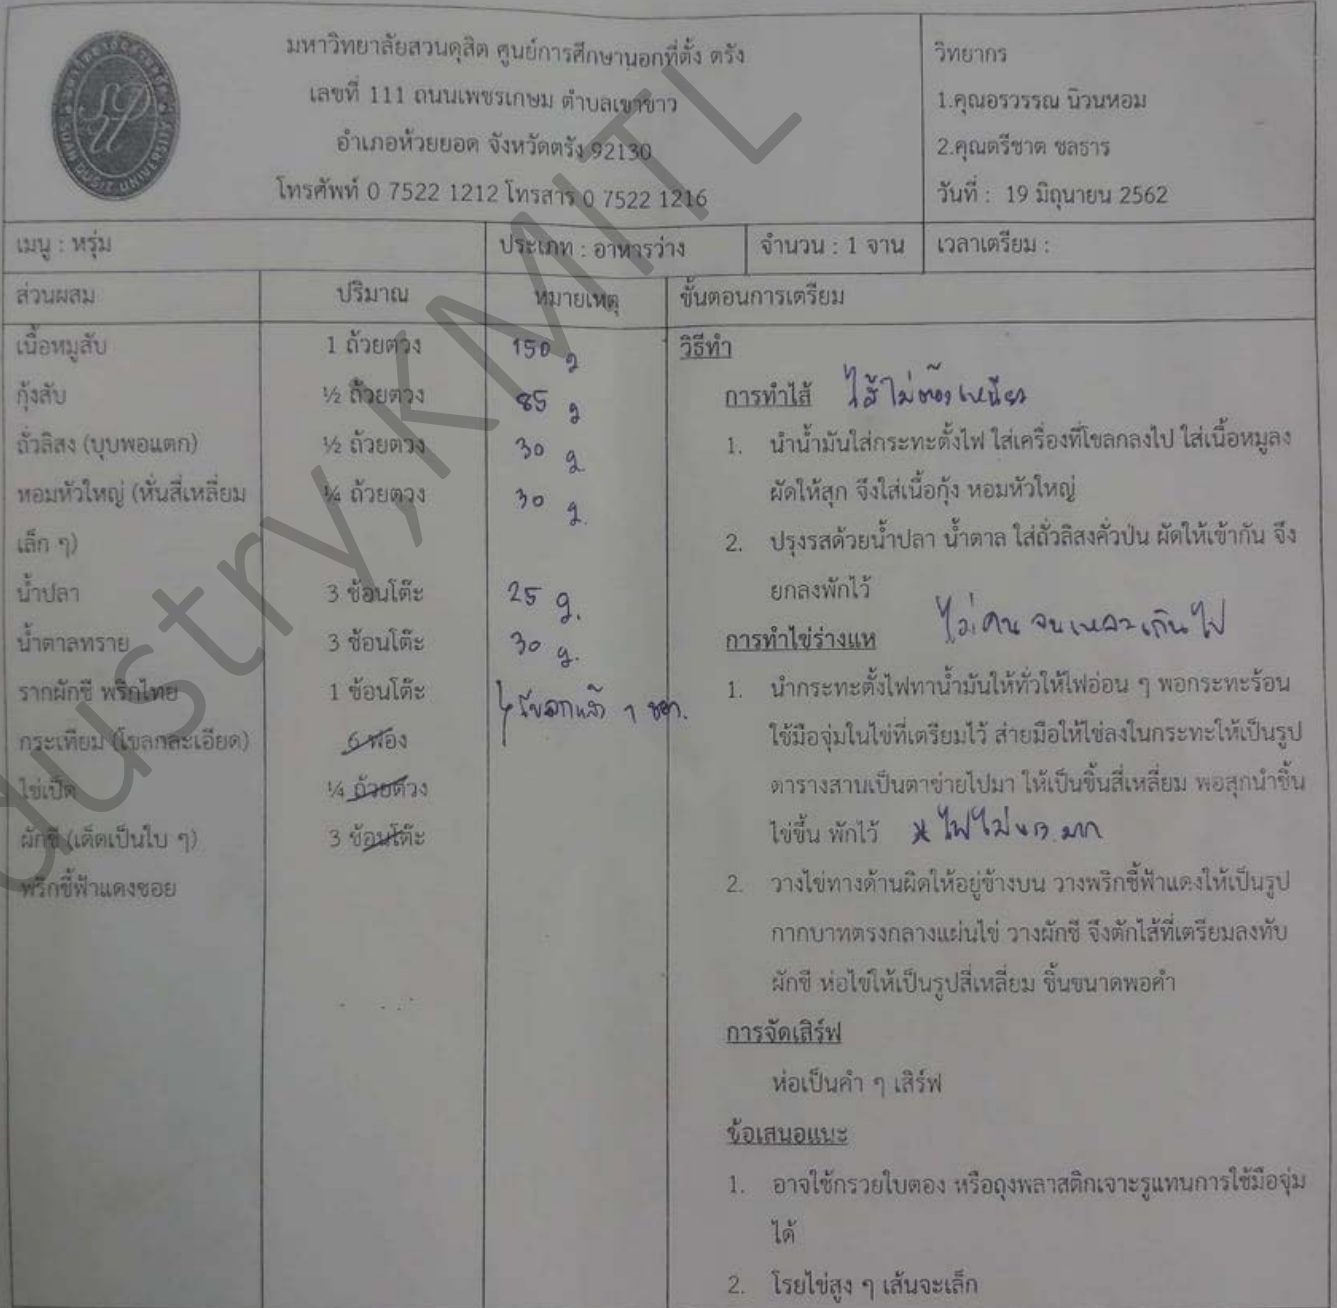 มหาวิทยาลัยสวนดุสิต ศูนย์การศึกษานอกที่ตั้ง ตรัง
เลขที่ 111 ถนนเพชรเกษม ตำบลเขาขาว
อำเภอห้วยยอด จังหวัดตรัง 92130
โทรศัพท์ 0 7522 1212 โทรสาร 0 7522 1216
วิทยากร
1.คุณอรวรรณ นิวนหอม
2.คุณตรีชาต ชลธาร
วันที่ : 19 มิถุนายน 2562
SUAN DUSIT UNIVERSITY
เมนู : หรุ่ม ประเภท : อาหารว่าง จำนวน : 1 จาน เวลาเตรียม :
ส่วนผสม ปริมาณ หมายเหตุ ขั้นตอนการเตรียม
เนื้อหมูสับ 1 ถ้วยตวง 150 g
กุ้งสับ ½ ถ้วยตวง 85 g
ถั่วลิสง (บุบพอแตก) ½ ถ้วยตวง 30 g.
หอมหัวใหญ่ (หั่นสี่เหลี่ยม ¼ ถ้วยตวง 30 g.
เล็ก ๆ)
น้ำปลา 3 ช้อนโต๊ะ 25 g.
น้ำตาลทราย 3 ช้อนโต๊ะ 30 g.
รากผักชี พริกไทย 1 ช้อนโต๊ะ
กระเทียม (โขลกละเอียด) 6 ฟอง
ไข่เป็ด ¼ ถ้วยตวง
ผักชี (เด็ดเป็นใบ ๆ) 3 ช้อนโต๊ะ
พริกชี้ฟ้าแดงซอย
วิธีทำ
การทำไส้ ไส้ไม่ต้องเหนียว
1. นำน้ำมันใส่กระทะตั้งไฟ ใส่เครื่องที่โขลกลงไป ใส่เนื้อหมูลง
ผัดให้สุก จึงใส่เนื้อกุ้ง หอมหัวใหญ่
2. ปรุงรสด้วยน้ำปลา น้ำตาล ใส่ถั่วลิสงคั่วป่น ผัดให้เข้ากัน จึง
ยกลงพักไว้
การทำไข่ร่างแห ไม่คนจนเหลวเกินไป
1. นำกระทะตั้งไฟทาน้ำมันให้ทั่วให้ไฟอ่อน ๆ พอกระทะร้อน
ใช้มือจุ่มในไข่ที่เตรียมไว้ ส่ายมือให้ไข่ลงในกระทะให้เป็นรูป
ตารางสานเป็นตาข่ายไปมา ให้เป็นชิ้นสี่เหลี่ยม พอสุกนำชิ้น
ไข่ขึ้น พักไว้
2. วางไข่ทางด้านผิดให้อยู่ข้างบน วางพริกชี้ฟ้าแดงให้เป็นรูป
กากบาทตรงกลางแผ่นไข่ วางผักชี จึงตักไส้ที่เตรียมลงทับ
ผักชี ห่อไข่ให้เป็นรูปสี่เหลี่ยม ชิ้นขนาดพอคำ
การจัดเสิร์ฟ
ห่อเป็นคำ ๆ เสิร์ฟ
ข้อเสนอแนะ
1. อาจใช้กรวยใบตอง หรือถุงพลาสติกเจาะรูแทนการใช้มือจุ่ม
ได้
2. โรยไข่สูง ๆ เส้นจะเล็ก
dustry, KMITL